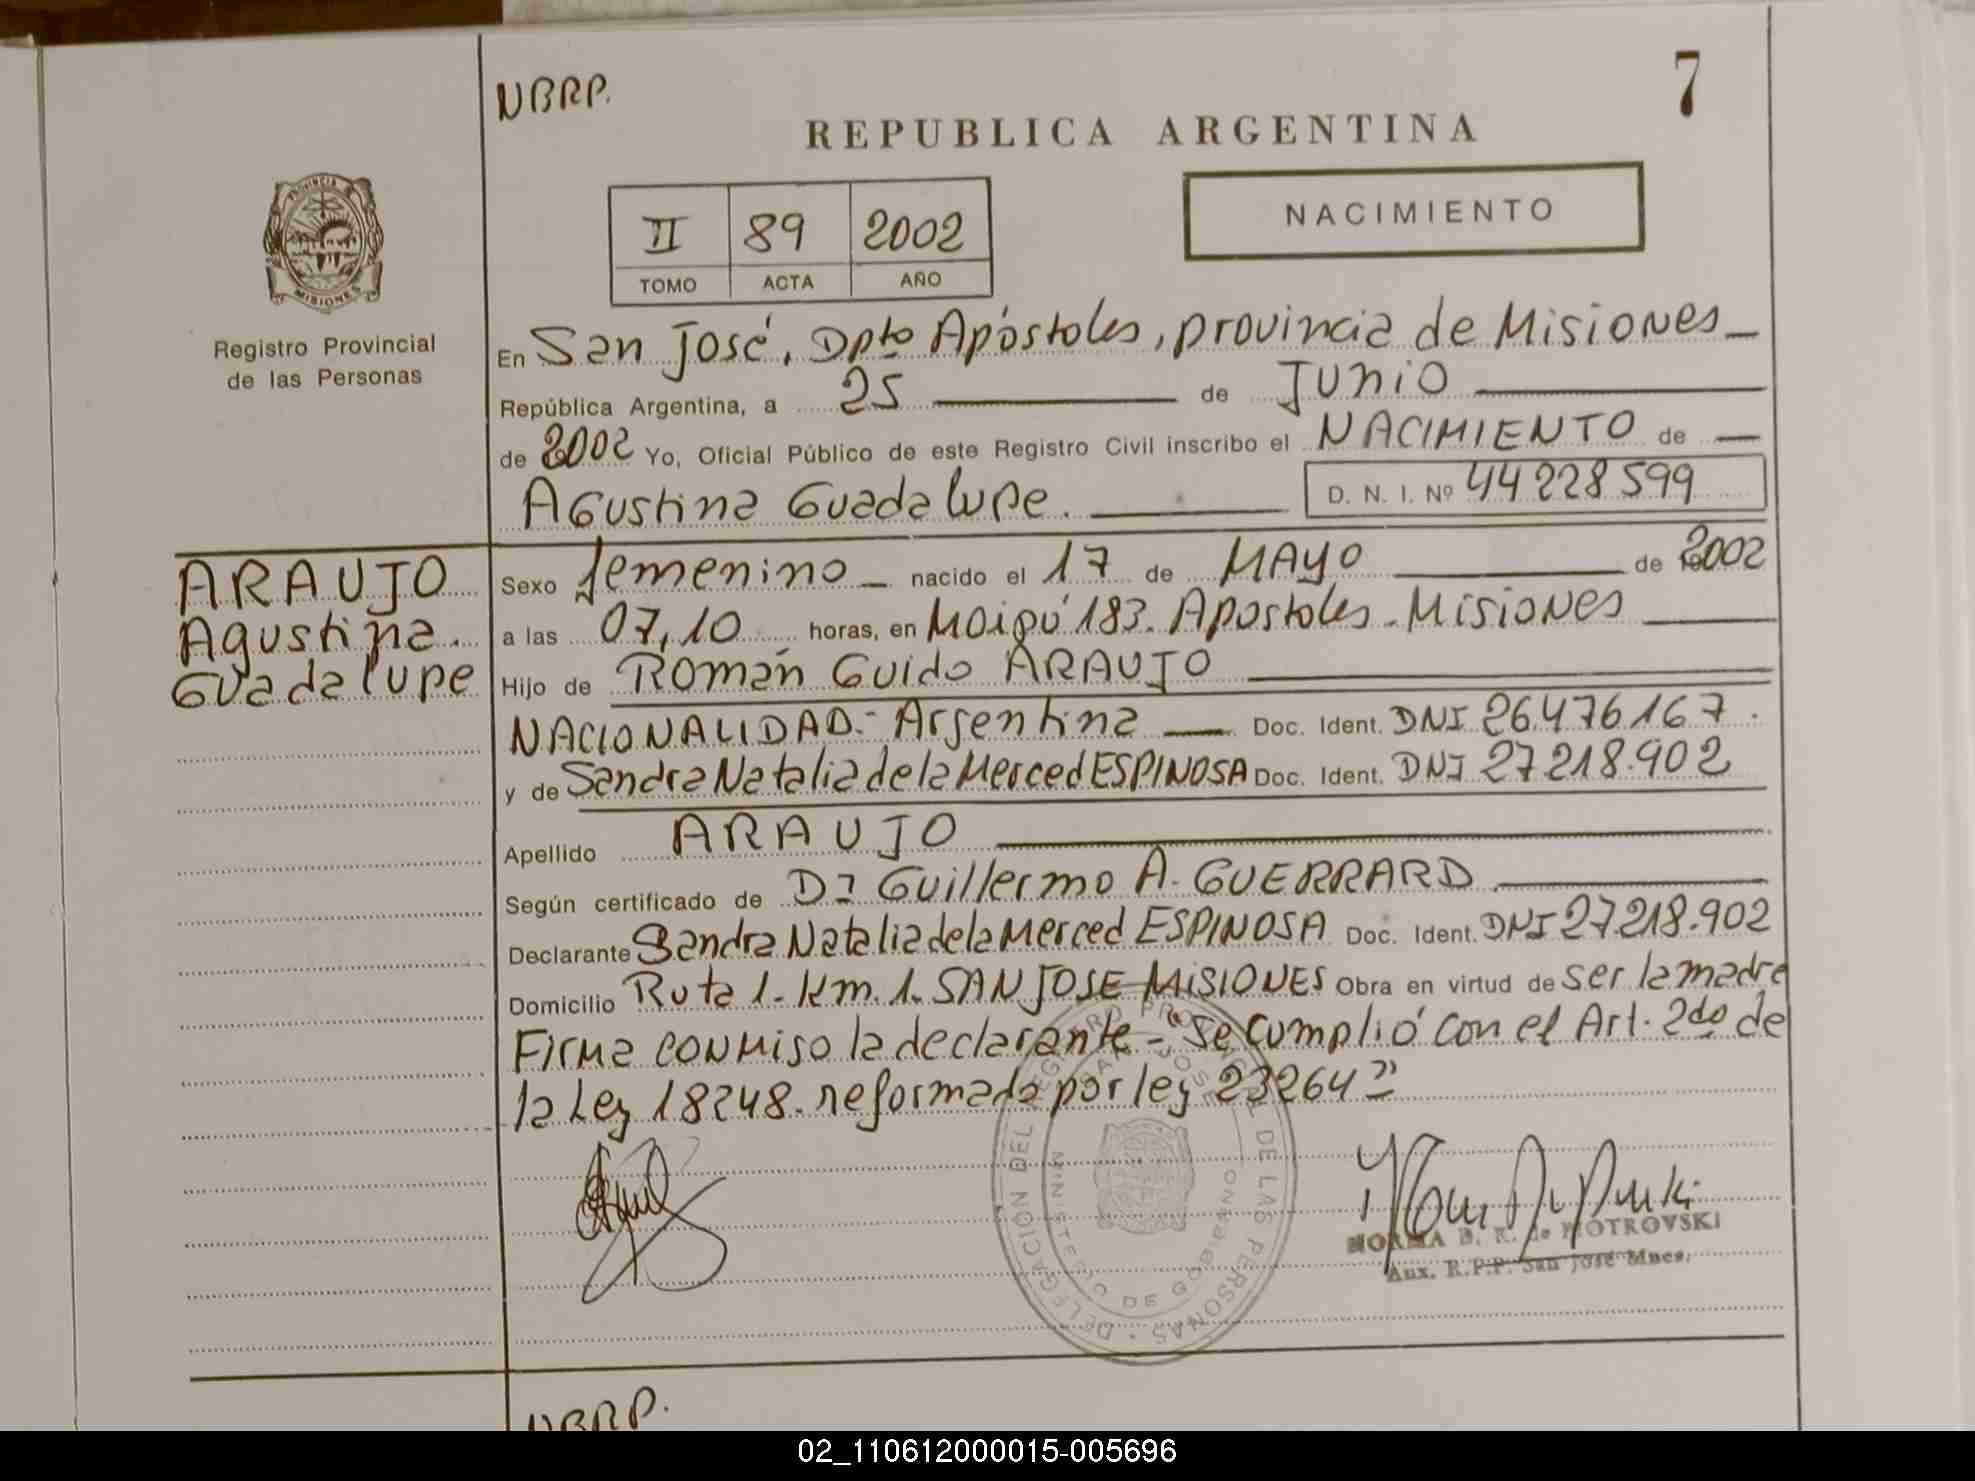 NBRP.
7
REPUBLICA ARGENTINA
NACIMIENTO
II 89 2002
TOMO ACTA AÑO
PROVINCIA DE
MISIONES
Registro Provincial
de las Personas
En San José, Dpto Apóstoles, provincia de Misiones
República Argentina, a 25 de Junio
de 2002 Yo, Oficial Público de este Registro Civil inscribo el NACIMIENTO de
Agustina Guadalupe. D. N. I. Nº 44 228 599
ARAUJO
Agustina.
Guadalupe
Sexo femenino nacido el 17 de MAYO de 2002
a las 07,10 horas, en Maipú 183. Apostoles - Misiones
Hijo de Román Guido ARAUJO
NACIONALIDAD.- Argentina Doc. Ident. DNI 26.476.167.
y de Sandra Natalia de la Merced ESPINOSA Doc. Ident. DNI 27 218.902
Apellido ARAUJO
Según certificado de Dr Guillermo A. GUERRARD
Declarante Sandra Natalia de la Merced ESPINOSA Doc. Ident. DNI 27.218.902
Domicilio Ruta 1. Km. 1. SAN JOSE MISIONES Obra en virtud de ser la madre
Firma conmigo la declarante - "Se cumplió con el Art. 2do de
la Ley 18248. reformada por ley 23264"
DELEGACION DEL REGISTRO PROVINCIAL DE LAS PERSONAS
SAN JOSE
MINISTERIO DE GOBIERNO
NORMA B. R. de PIOTROVSKI
Aux. R.P.P. San José Mnes.
NBRP.
02_110612000015-005696